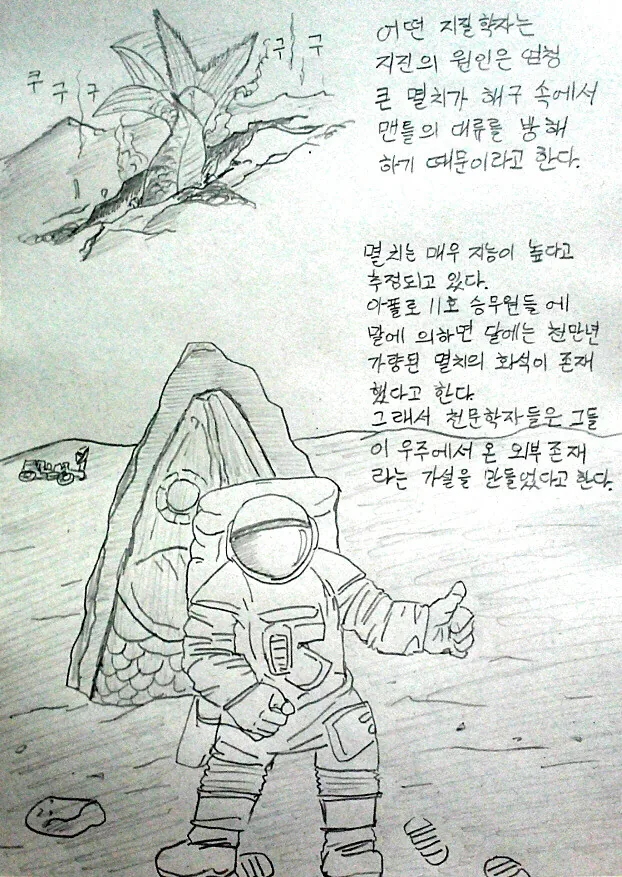 쿠 구 구
구 구
어떤 지질학자는
지진의 원인은 엄청
큰 멸치가 해구 속에서
맨틀의 대류를 방해
하기 때문이라고 한다.
멸치는 매우 지능이 높다고
추정되고 있다.
아폴로 11호 승무원들에
말에 의하면 달에는 천만년
가량된 멸치의 화석이 존재
했다고 한다.
그래서 천문학자들은 그들
이 우주에서 온 외부존재
라는 가설을 만들었다고 한다.